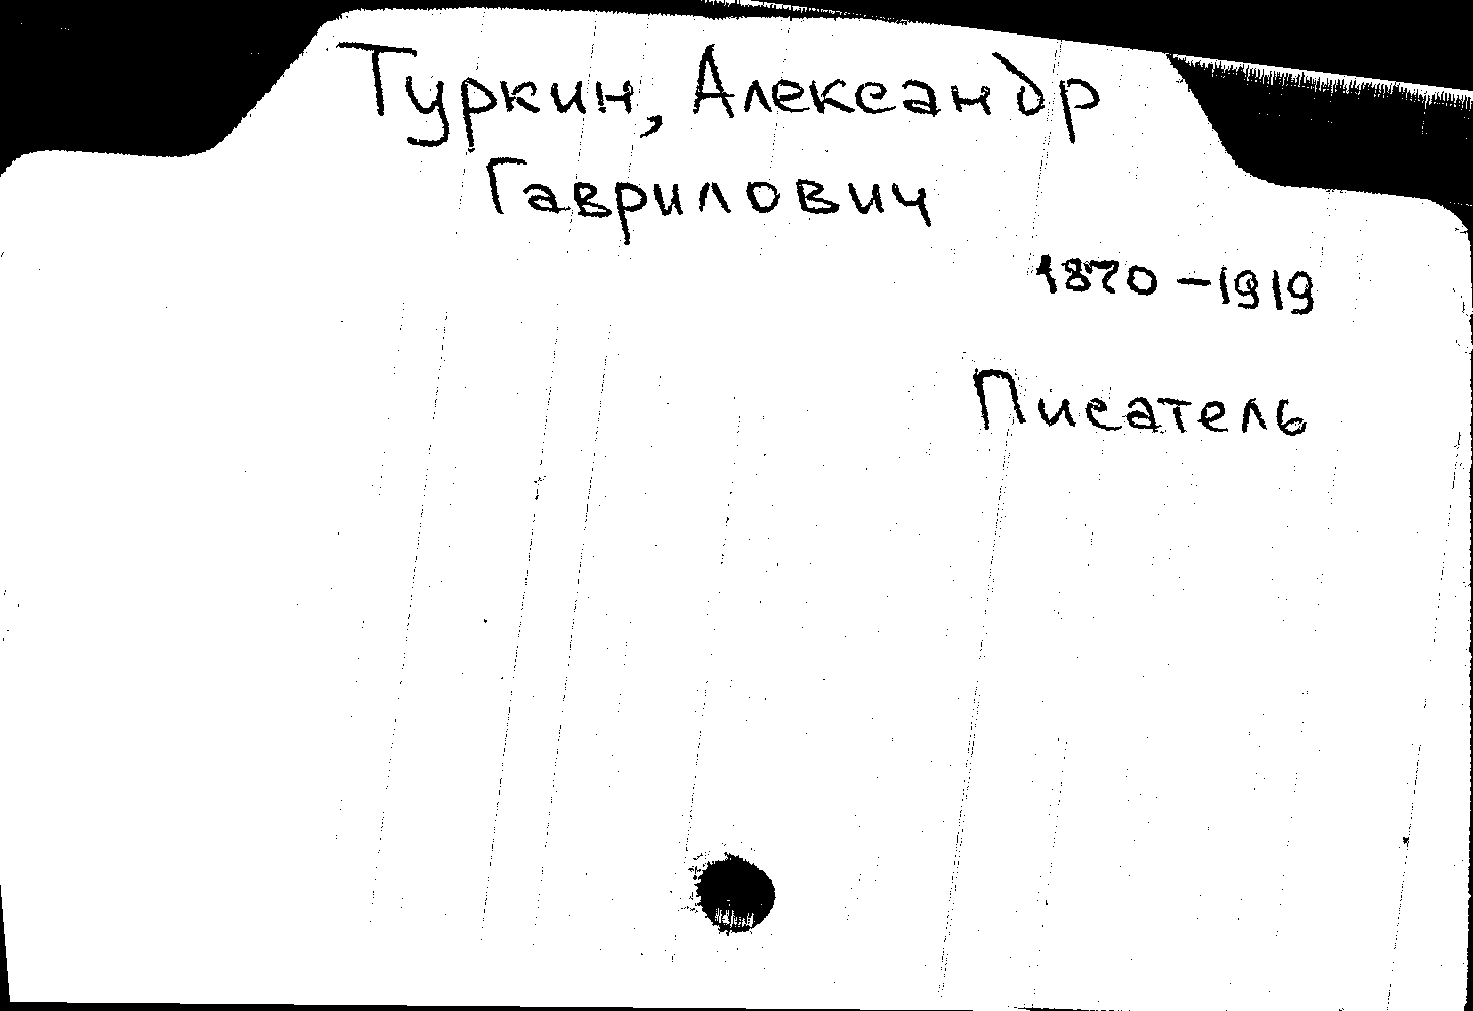 Туркин, Александр
Гаврилович
1870-1919
Писатель